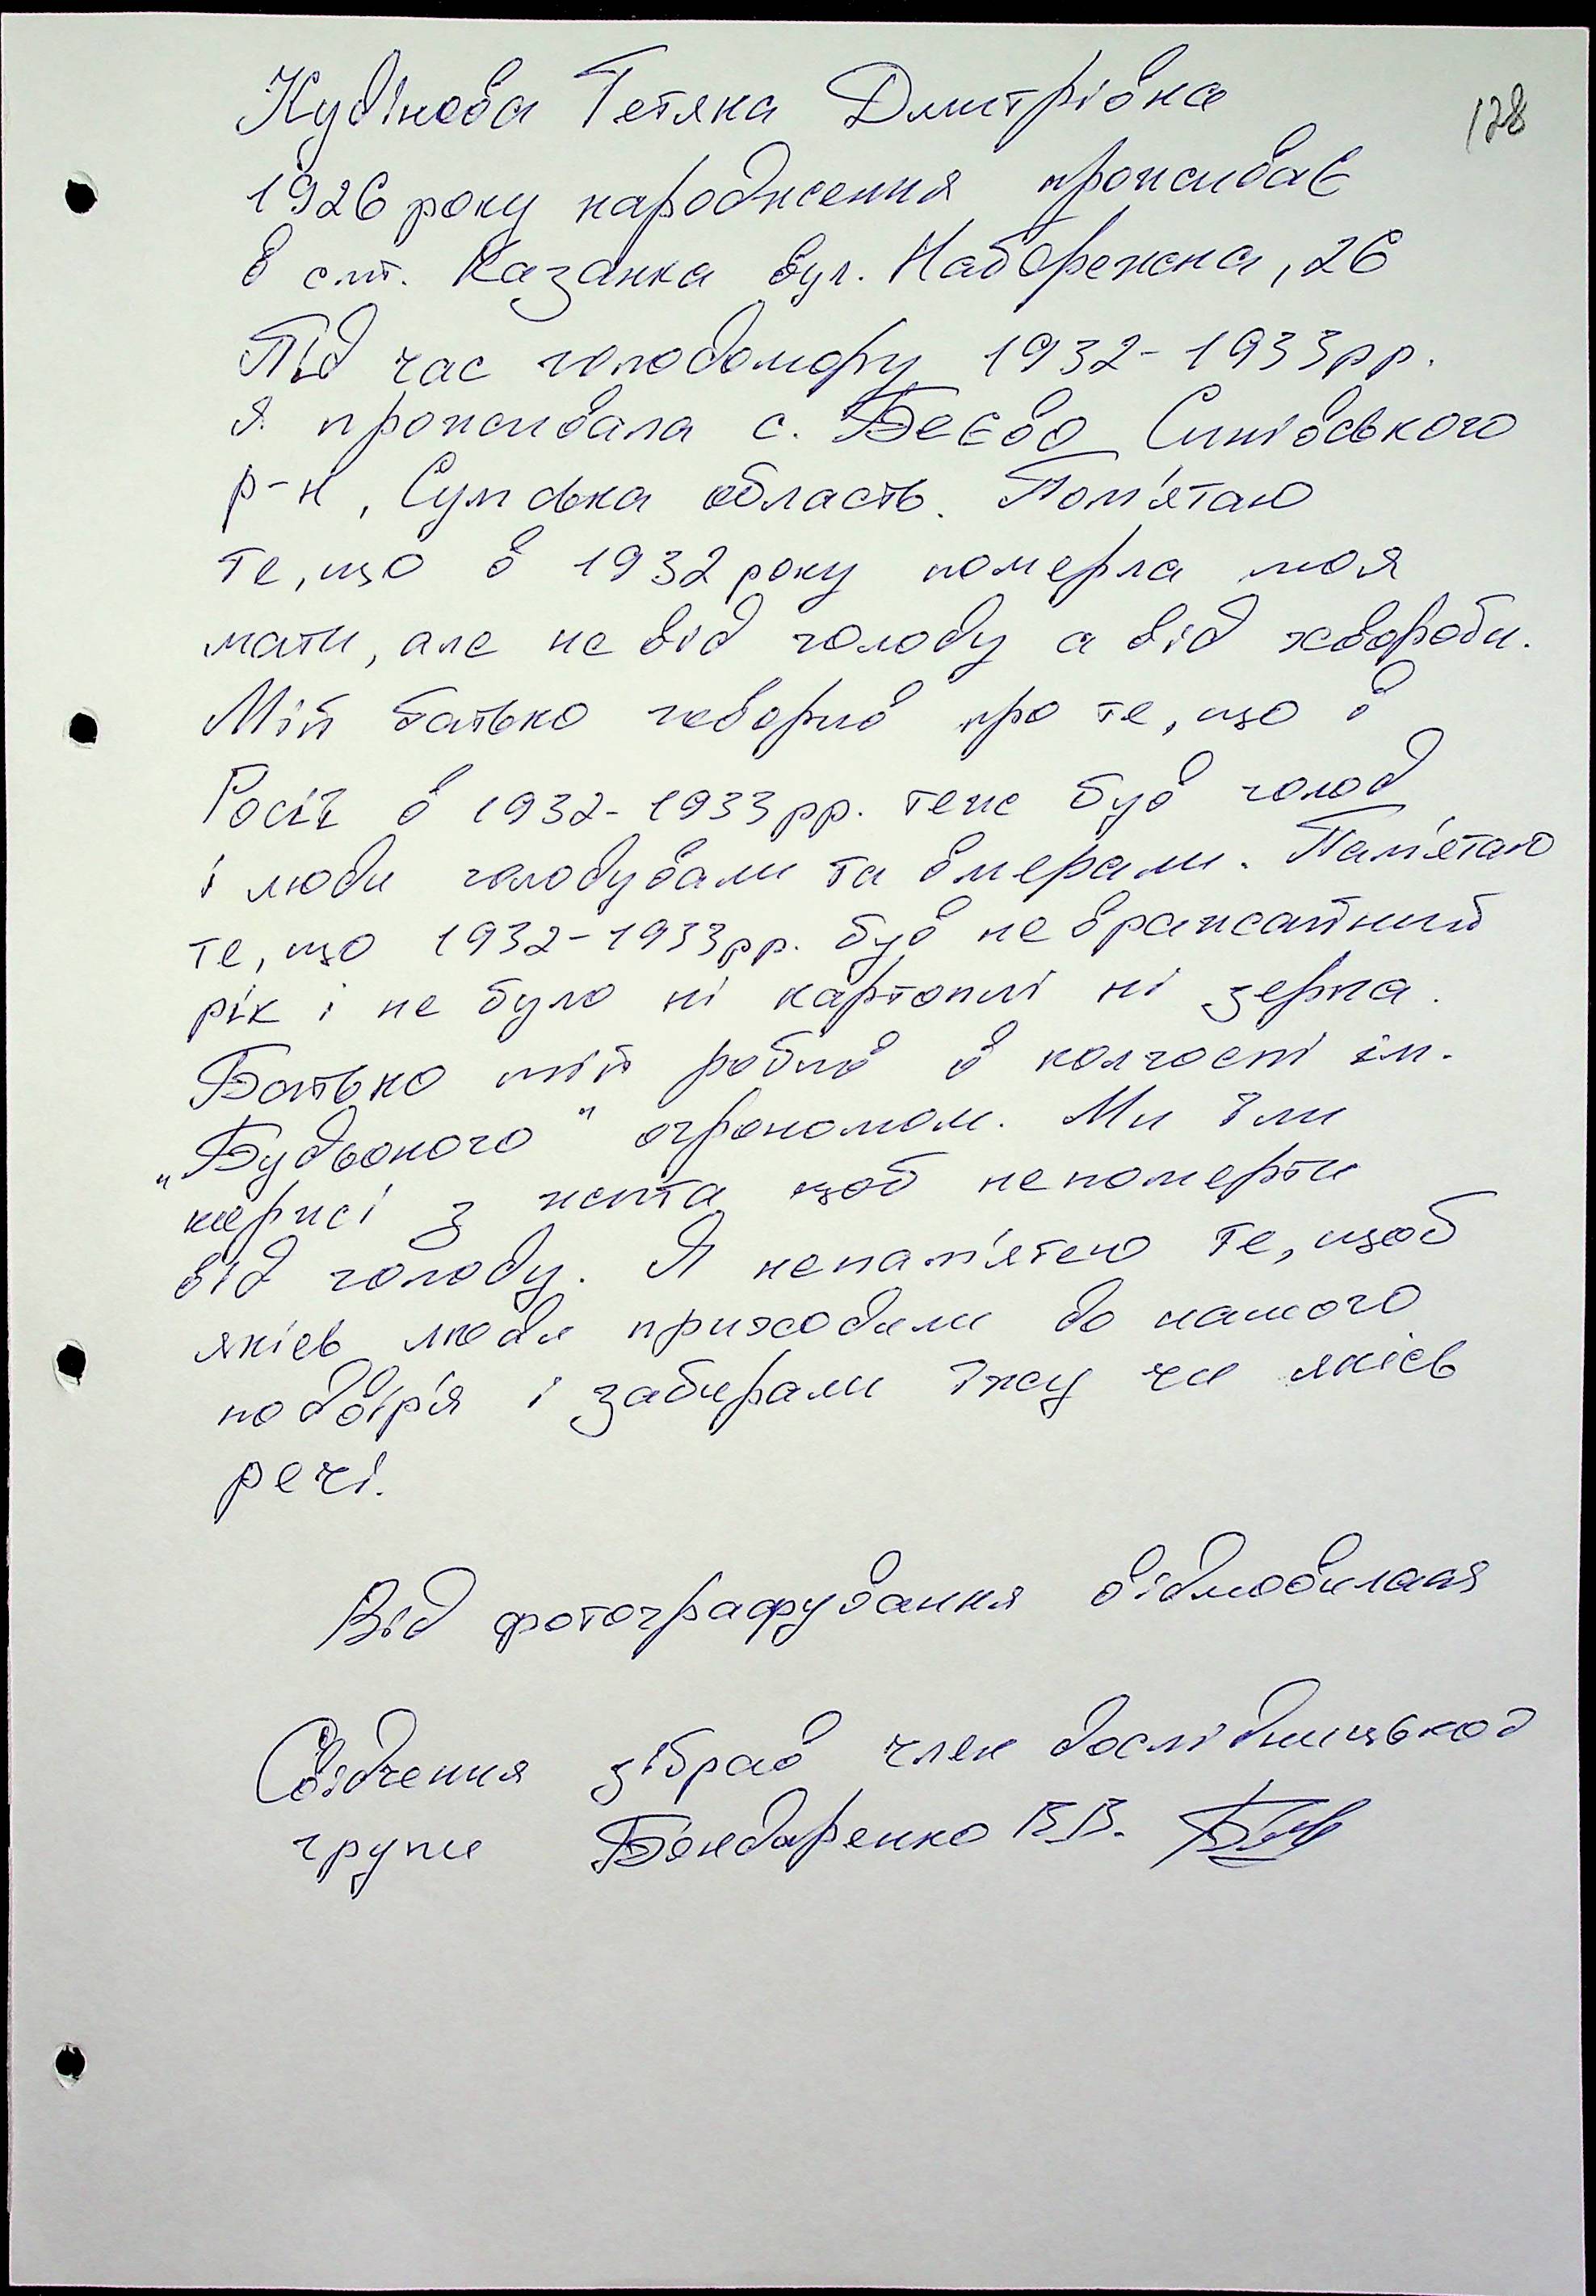 128
Кудінова Тетяна Дмитрівна
1926 року народження проживає
в смт. Казанка вул. Набережна, 26
Під час голодомору 1932-1933рр.
я проживала с. Беєво Синівського
р-н, Сумська область. Пом'ятаю
те, що в 1932 року померла моя
мати, але не від голоду а від хвороби.
Мій батько говорив про те, що в
Росії в 1932-1933рр. теж був голод
і люди голодували та вмерали. Пам'ятаю
те, що 1932-1933рр. був не вражайний
рік і не було ні картоплі ні зерна.
Батько мій робив в колгоспі ім.
„Будьоного" агрономом. Ми їли
з жита щоб непомерти
від голоду. Я непам'ятаю те, щоб
якісь люди приходили до нашого
подвір'я і забирали їжу чи якісь
речі.
Від фотографування відмовилася
Свідчення зібрав член дослідницької
групи Бондаренко В.В.